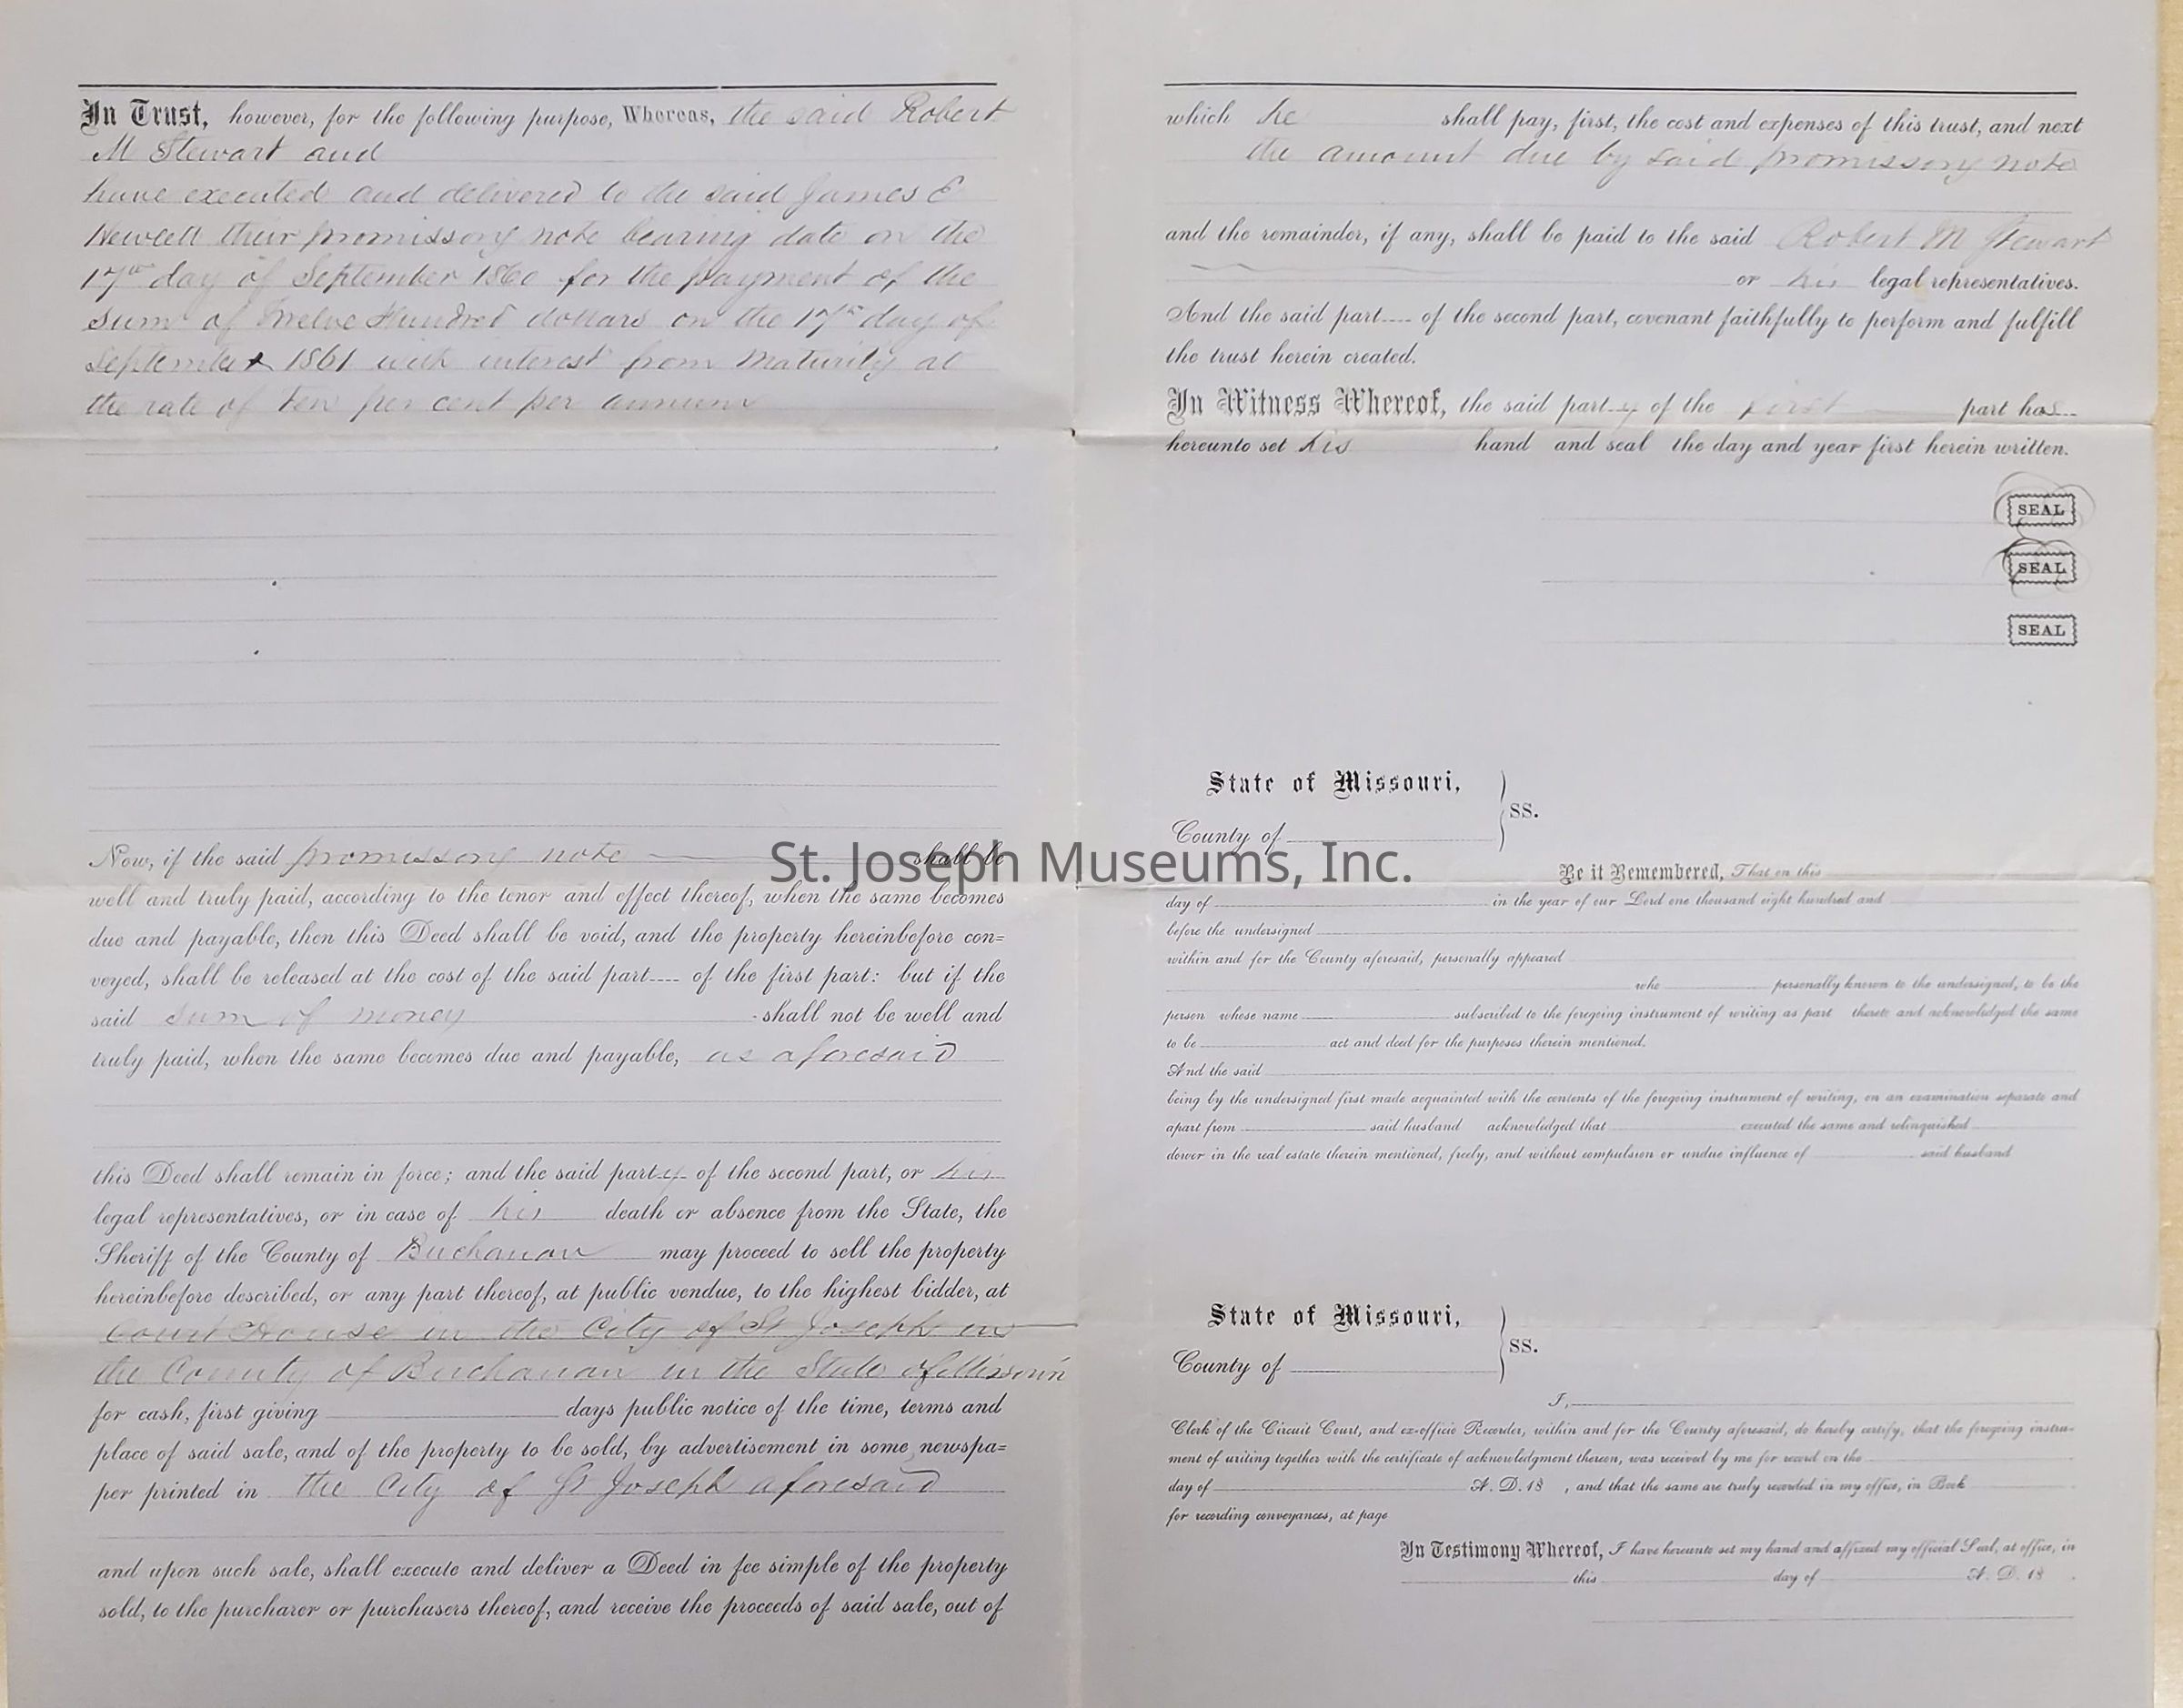 In Trust, however, for the following purpose, Whereas, the said Robert
M Stewart and
have executed and delivered to the said James E
Newcell their promissory note bearing date on the
17th day of September 1860 for the payment of the
sum of Twelve Hundred dollars on the 17th day of
September 1861 with interest from maturity at
the rate of ten per cent per annum
Now, if the said promissory note shall be
well and truly paid, according to the tenor and effect thereof, when the same becomes
due and payable, then this Deed shall be void, and the property hereinbefore con=
veyed, shall be released at the cost of the said part---- of the first part: but if the
said sum of money shall not be well and
truly paid, when the same becomes due and payable, as aforesaid
this Deed shall remain in force; and the said party of the second part, or his
legal representatives, or in case of his death or absence from the State, the
Sheriff of the County of Buchanan may proceed to sell the property
hereinbefore described, or any part thereof, at public vendue, to the highest bidder, at
Court House in the City of St Joseph in
the County of Buchanan in the State of Missouri
for cash, first giving days public notice of the time, terms and
place of said sale, and of the property to be sold, by advertisement in some newspa=
per printed in the City of St Joseph aforesaid
and upon such sale, shall execute and deliver a Deed in fee simple of the property
sold, to the purchaser or purchasers thereof, and receive the proceeds of said sale, out of
which he shall pay, first, the cost and expenses of this trust, and next
the amount due by said promissory note
and the remainder, if any, shall be paid to the said Robert M Stewart
or his legal representatives.
And the said part---- of the second part, covenant faithfully to perform and fulfill
the trust herein created.
In Witness Whereof, the said party of the first part has
hereunto set his hand and seal the day and year first herein written.
SEAL
SEAL
SEAL
State of Missouri,
SS.
County of
St. Joseph Museums, Inc.
Be it Remembered, That on this
day of in the year of our Lord one thousand eight hundred and
before the undersigned
within and for the County aforesaid, personally appeared
who personally known to the undersigned, to be the
person whose name subscribed to the foregoing instrument of writing as part thereto and acknowledged the same
to be act and deed for the purposes therein mentioned.
And the said
being by the undersigned first made acquainted with the contents of the foregoing instrument of writing, on an examination separate and
apart from said husband acknowledged that executed the same and relinquished
dower in the real estate therein mentioned, freely, and without compulsion or undue influence of said husband
State of Missouri,
SS.
County of
I,
Clerk of the Circuit Court, and ex-officio Recorder, within and for the County aforesaid, do hereby certify, that the foregoing instru-
ment of writing together with the certificate of acknowledgment thereon, was received by me for record on the
day of A. D. 18 , and that the same are truly recorded in my office, in Book
for recording conveyances, at page
In Testimony Whereof, I have hereunto set my hand and affixed my official Seal, at office, in
this day of A. D. 18 .